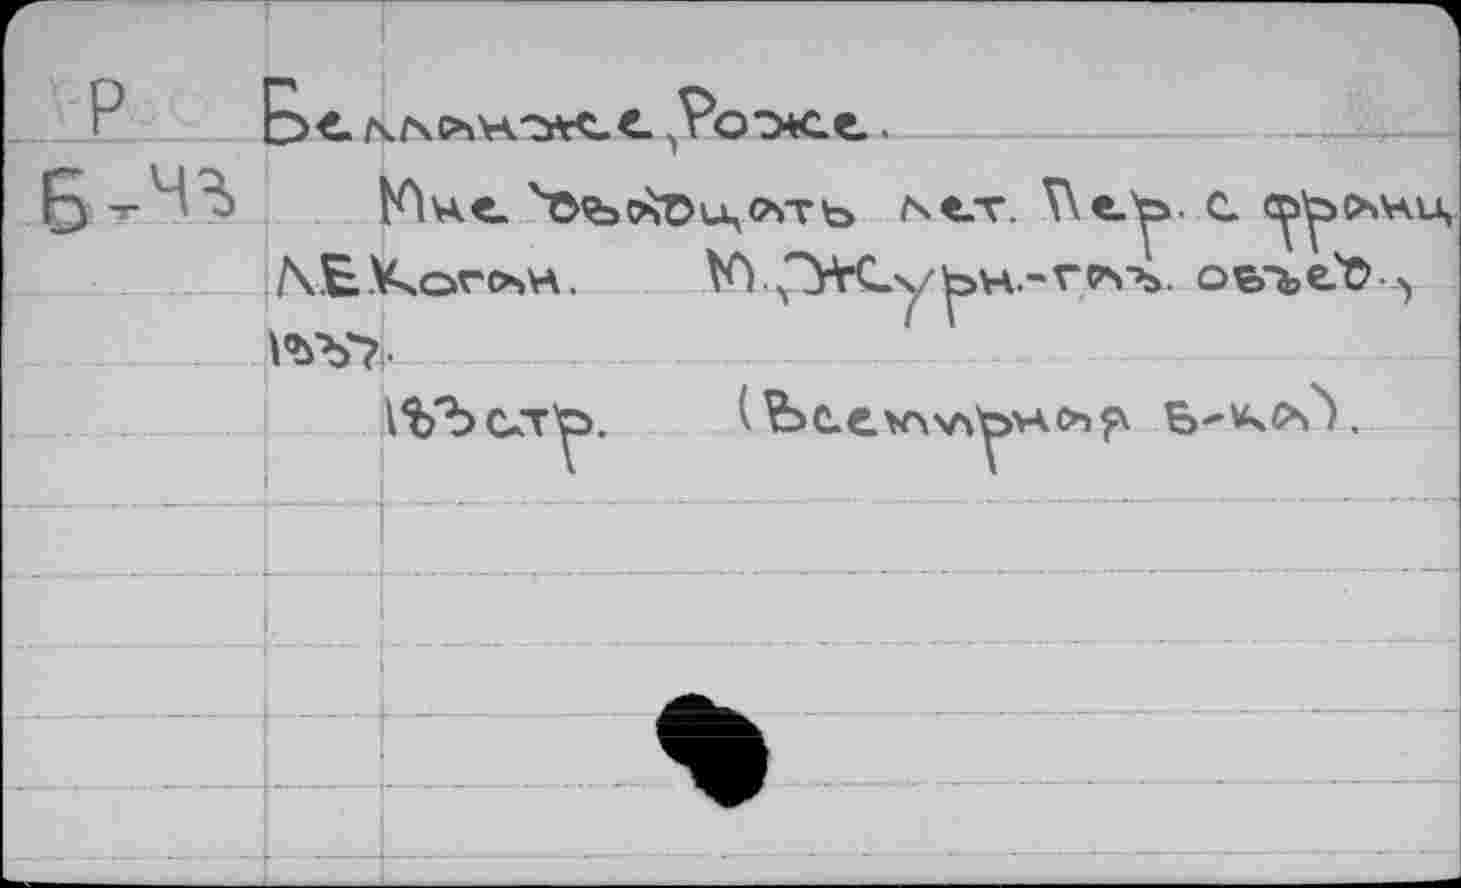 Р Белланже, Роже.
Б-43 Мне двадцать лет. Пер. с франц.
Л.Е.Коган. М., Журн.-газ. объед.,
1937.
173 стр. (Всемирная б-ка).